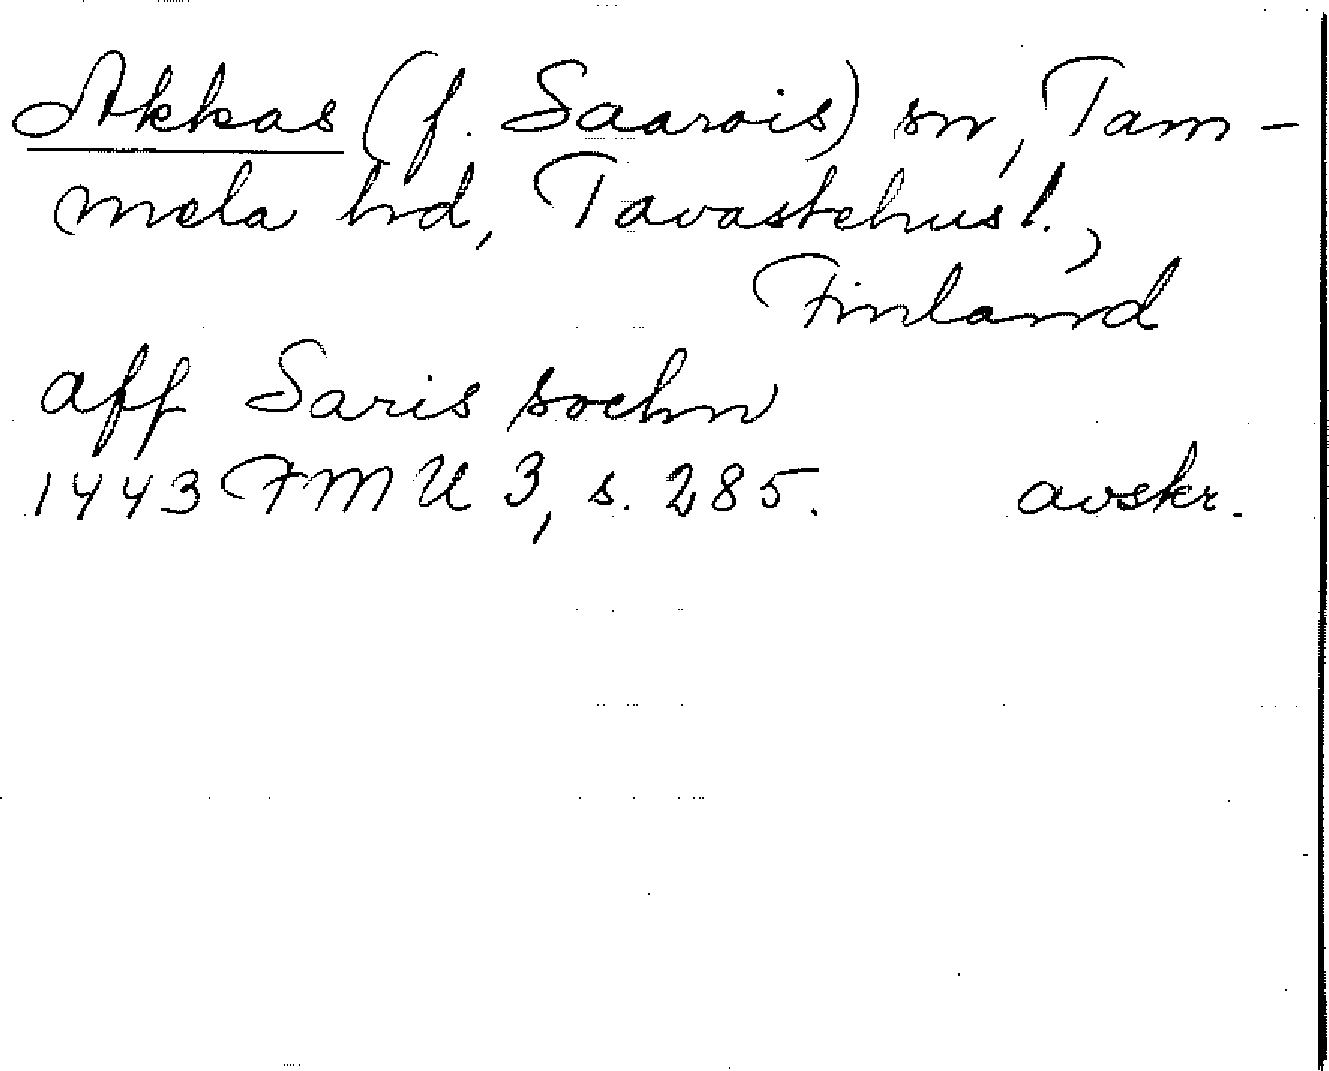 Akkas (f. Saarois) sn, Tam-
mela hd, Tavastehus l.,
Finland
aff Saris sochn
1443 FMU 3, s. 285. avskr.